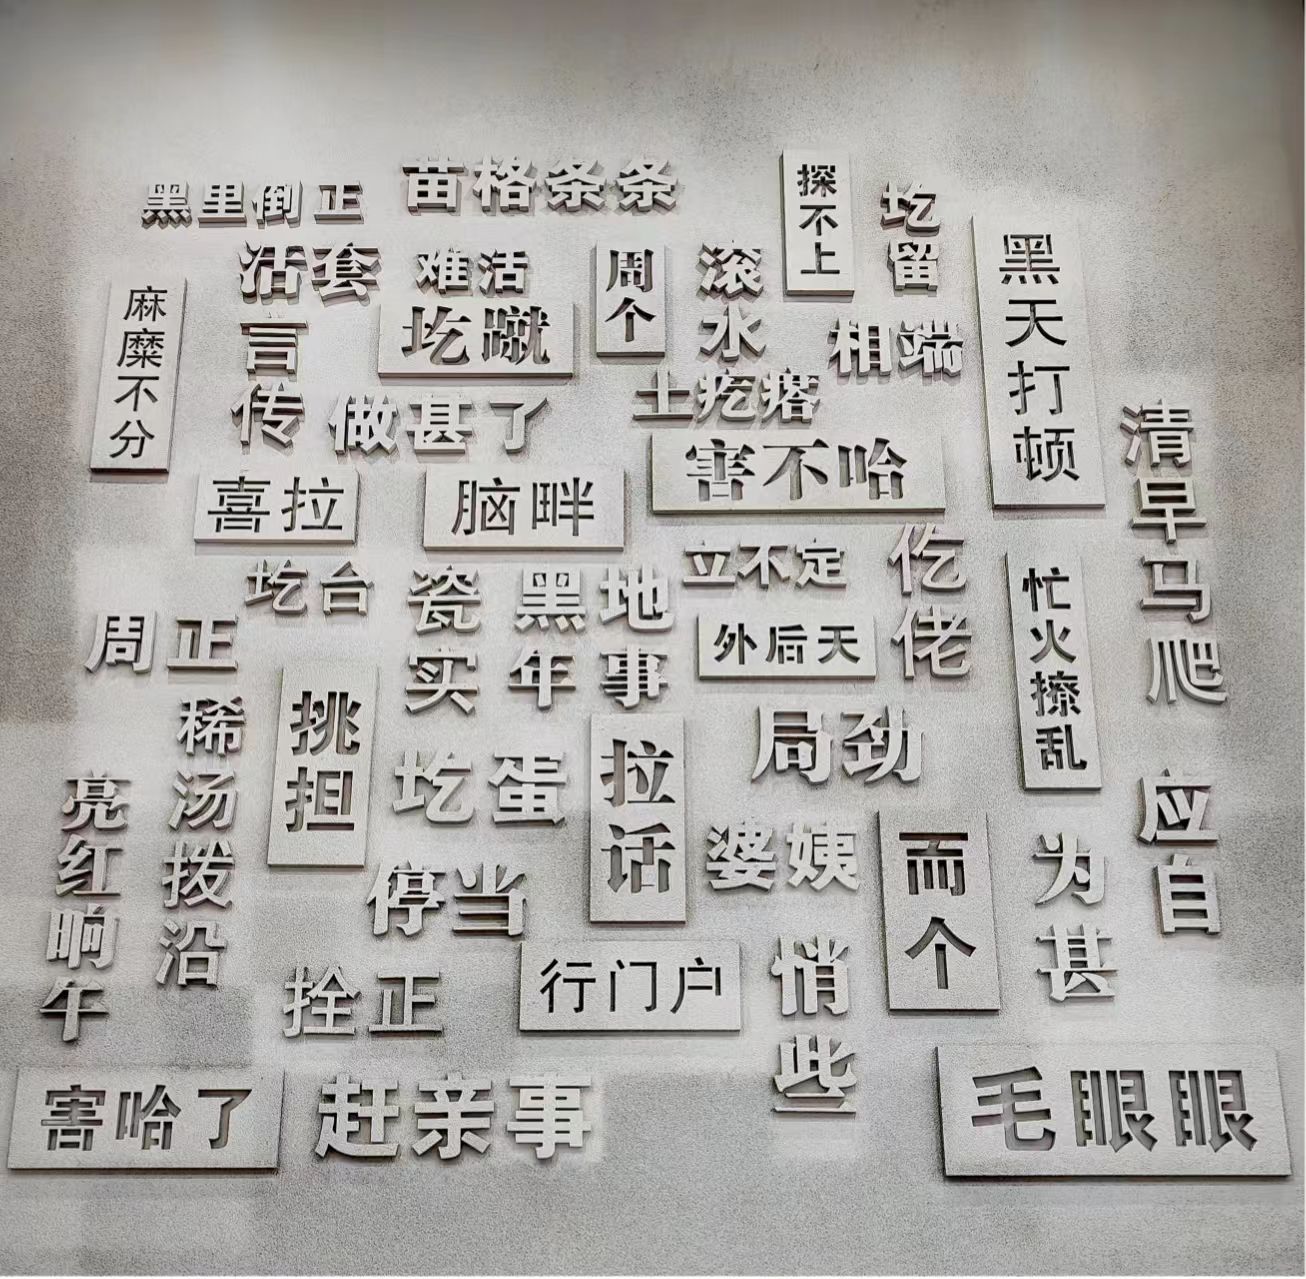 黑里倒正
苗格条条
探不上
圪留
黑天打顿
活套
难活
周个
滚水
麻糜不分
言传
圪蹴
相端
做甚了
土疙瘩
清早马爬
喜拉
脑畔
害不哈
圪台
瓷实
黑年
地事
立不定
仡佬
忙火撩乱
周正
外后天
稀汤拨沿
挑担
局劲
亮红晌午
圪蛋
拉话
婆姨
而个
为甚
应自
停当
拴正
行门户
悄些
害哈了
赶亲事
毛眼眼